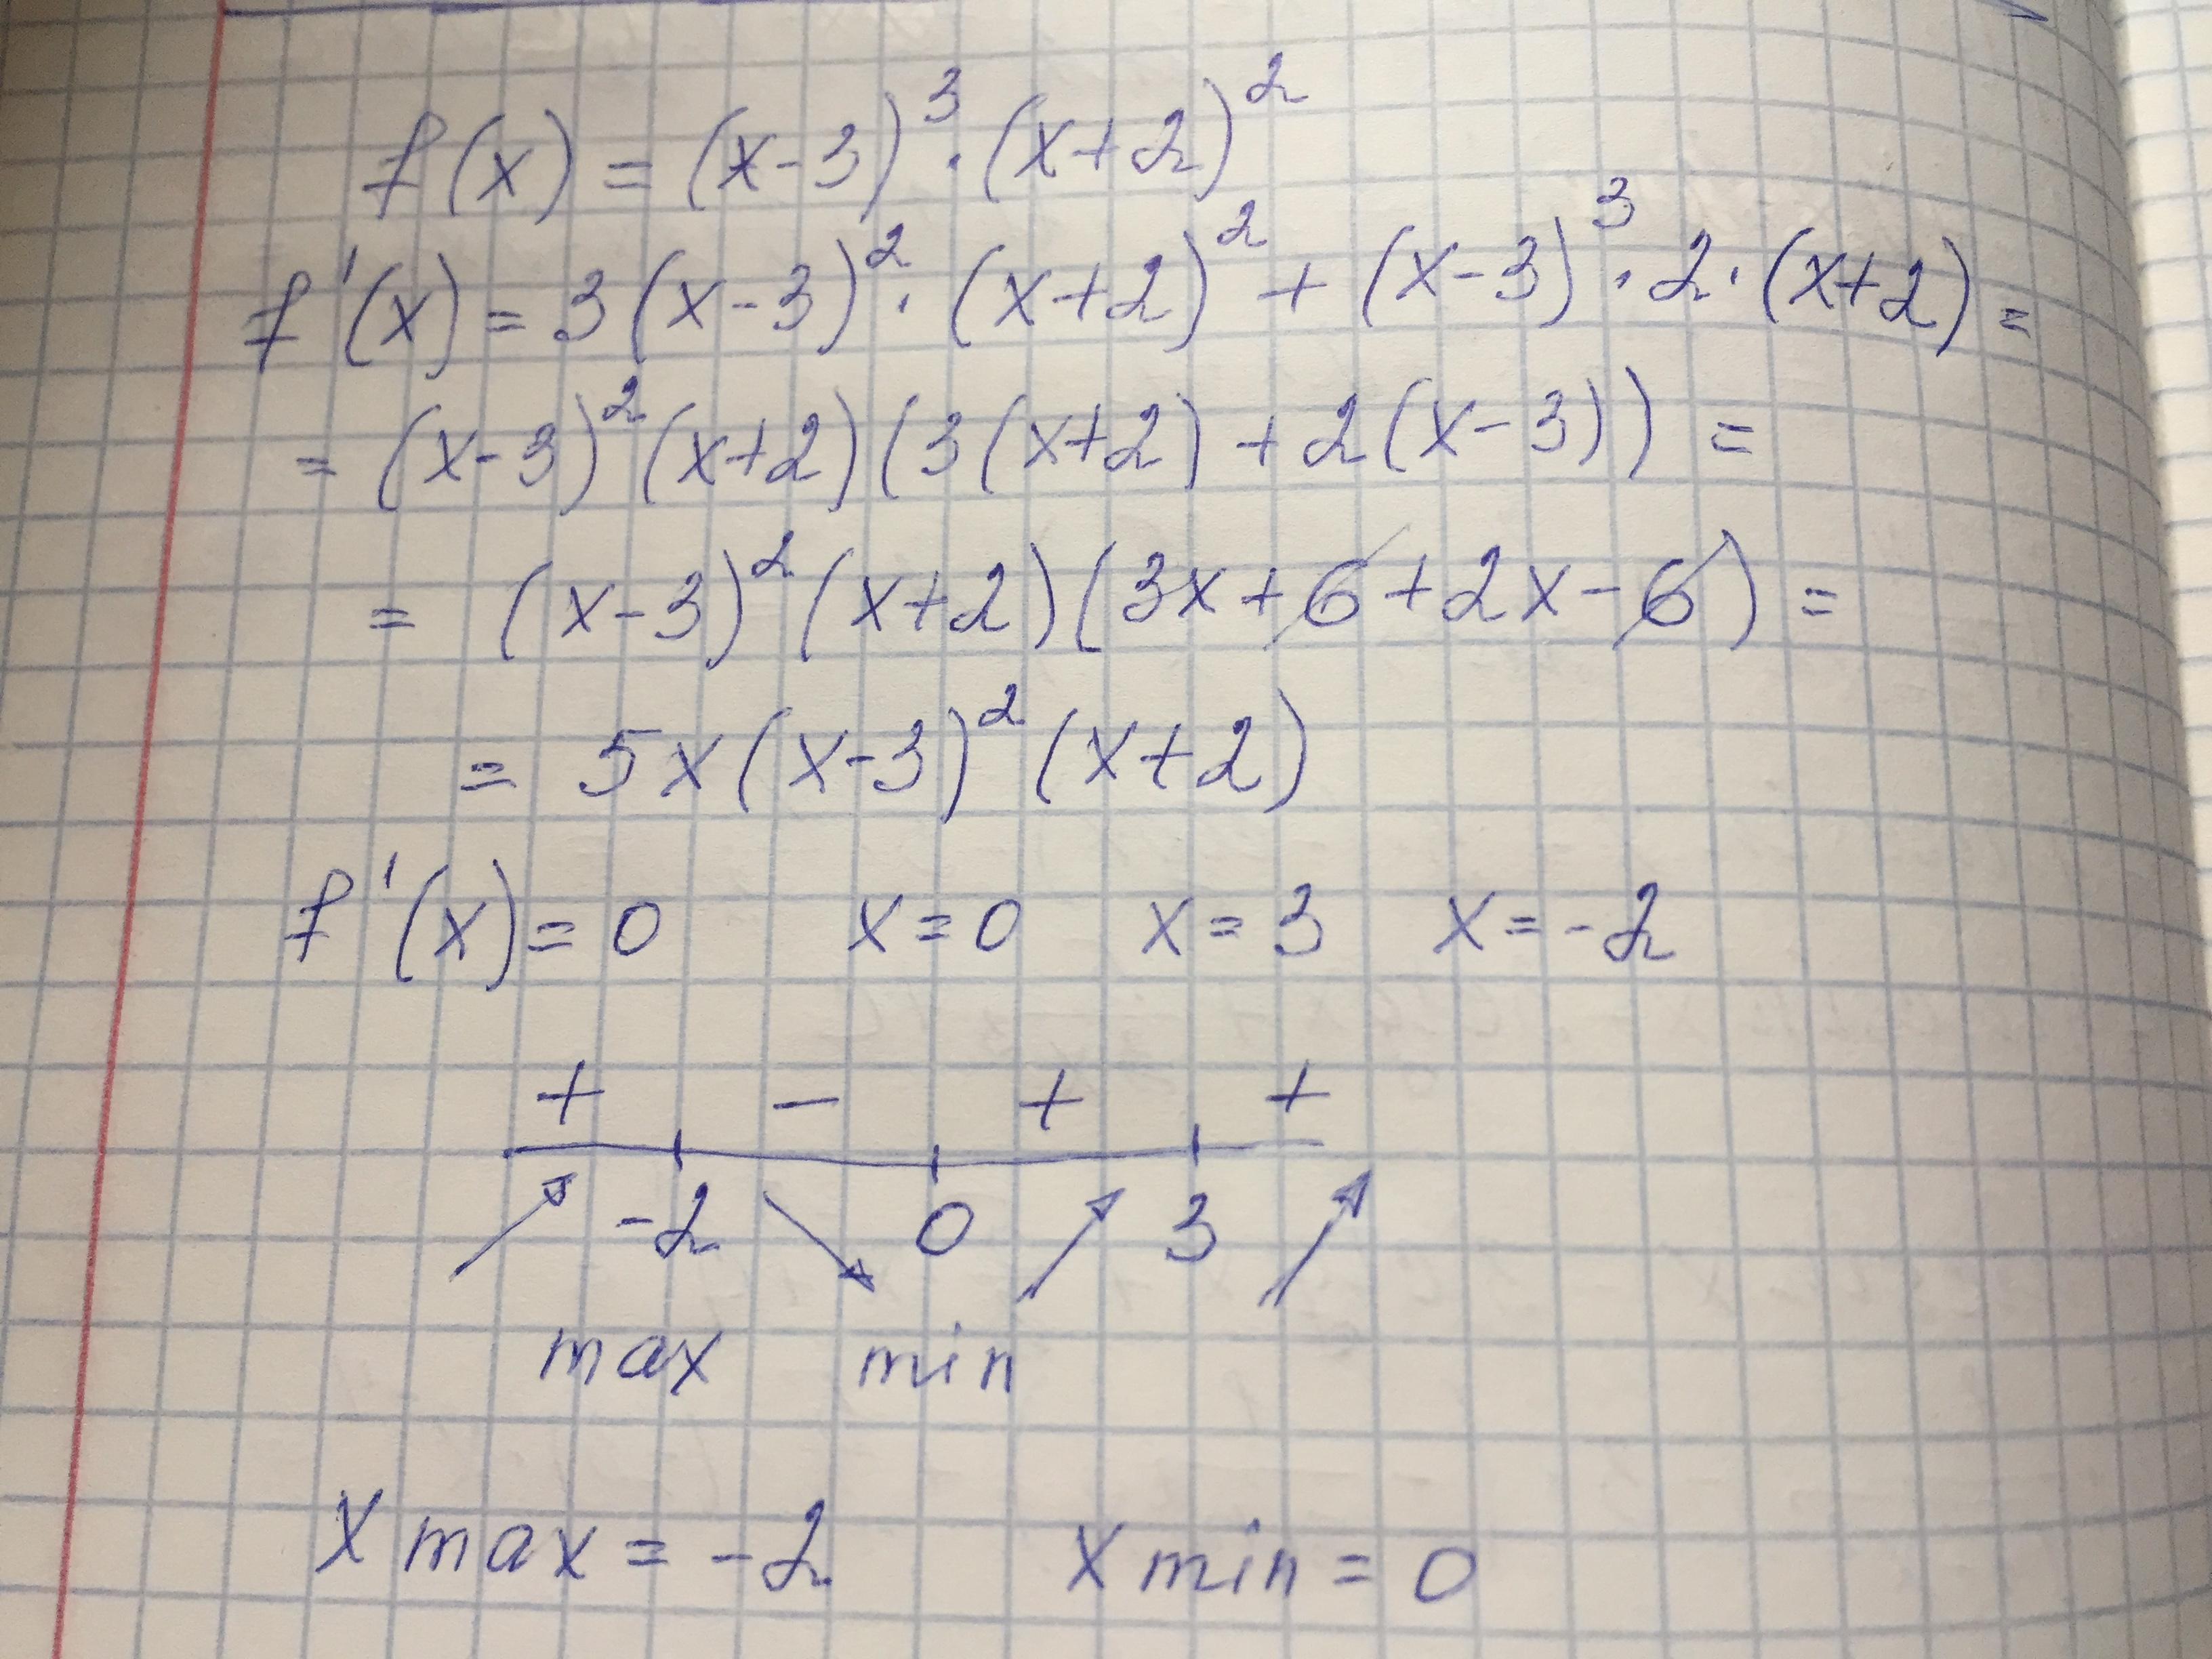 f(x) = (x-3)³·(x+2)²
f'(x) = 3(x-3)²·(x+2)² + (x-3)³·2·(x+2) =
= (x-3)²(x+2)(3(x+2)+2(x-3)) =
= (x-3)²(x+2)(3x+6+2x-6) =
= 5x(x-3)²(x+2)
f'(x) = 0 x=0 x=3 x=-2
+ - + +
-2 0 3
max min
x max = -2 x min = 0